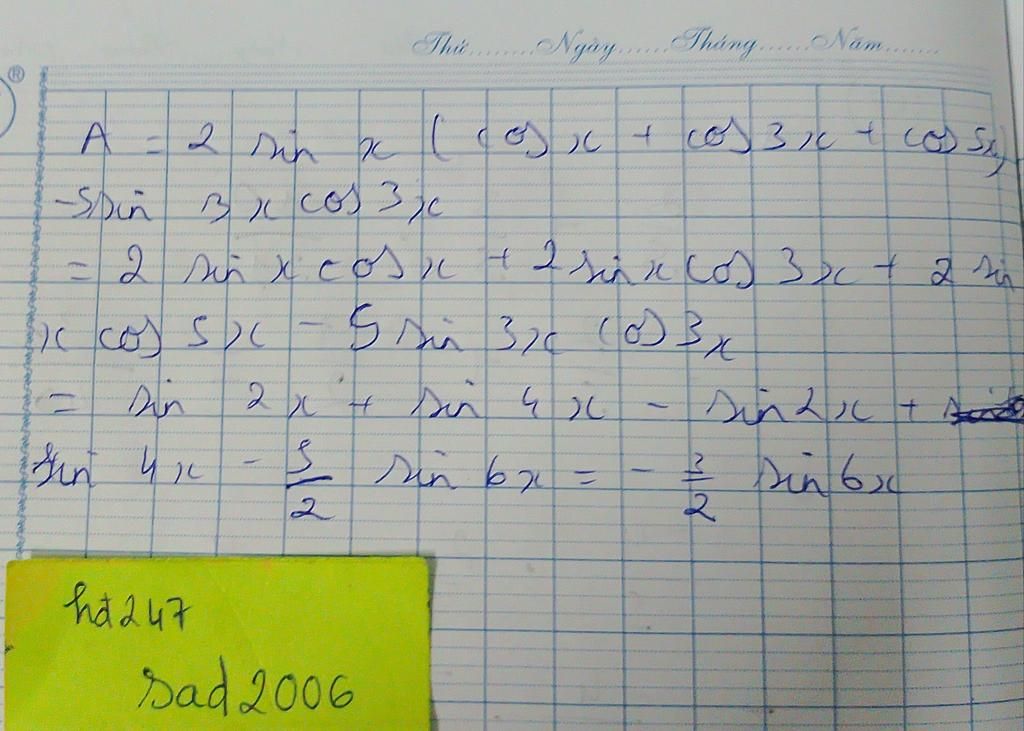 Thứ........Ngày......Tháng......Năm.......
®
A = 2 sin x (cos x + cos 3x + cos 5x)
-5sin 3x cos 3x
= 2 sin x cos x + 2 sin x cos 3x + 2 sin
x cos 5x - 5 sin 3x cos 3x
= sin 2x + sin 4x - sin 2x +
sin 4x - 5/2 sin 6x = - 3/2 sin 6x
hd247
sad2006